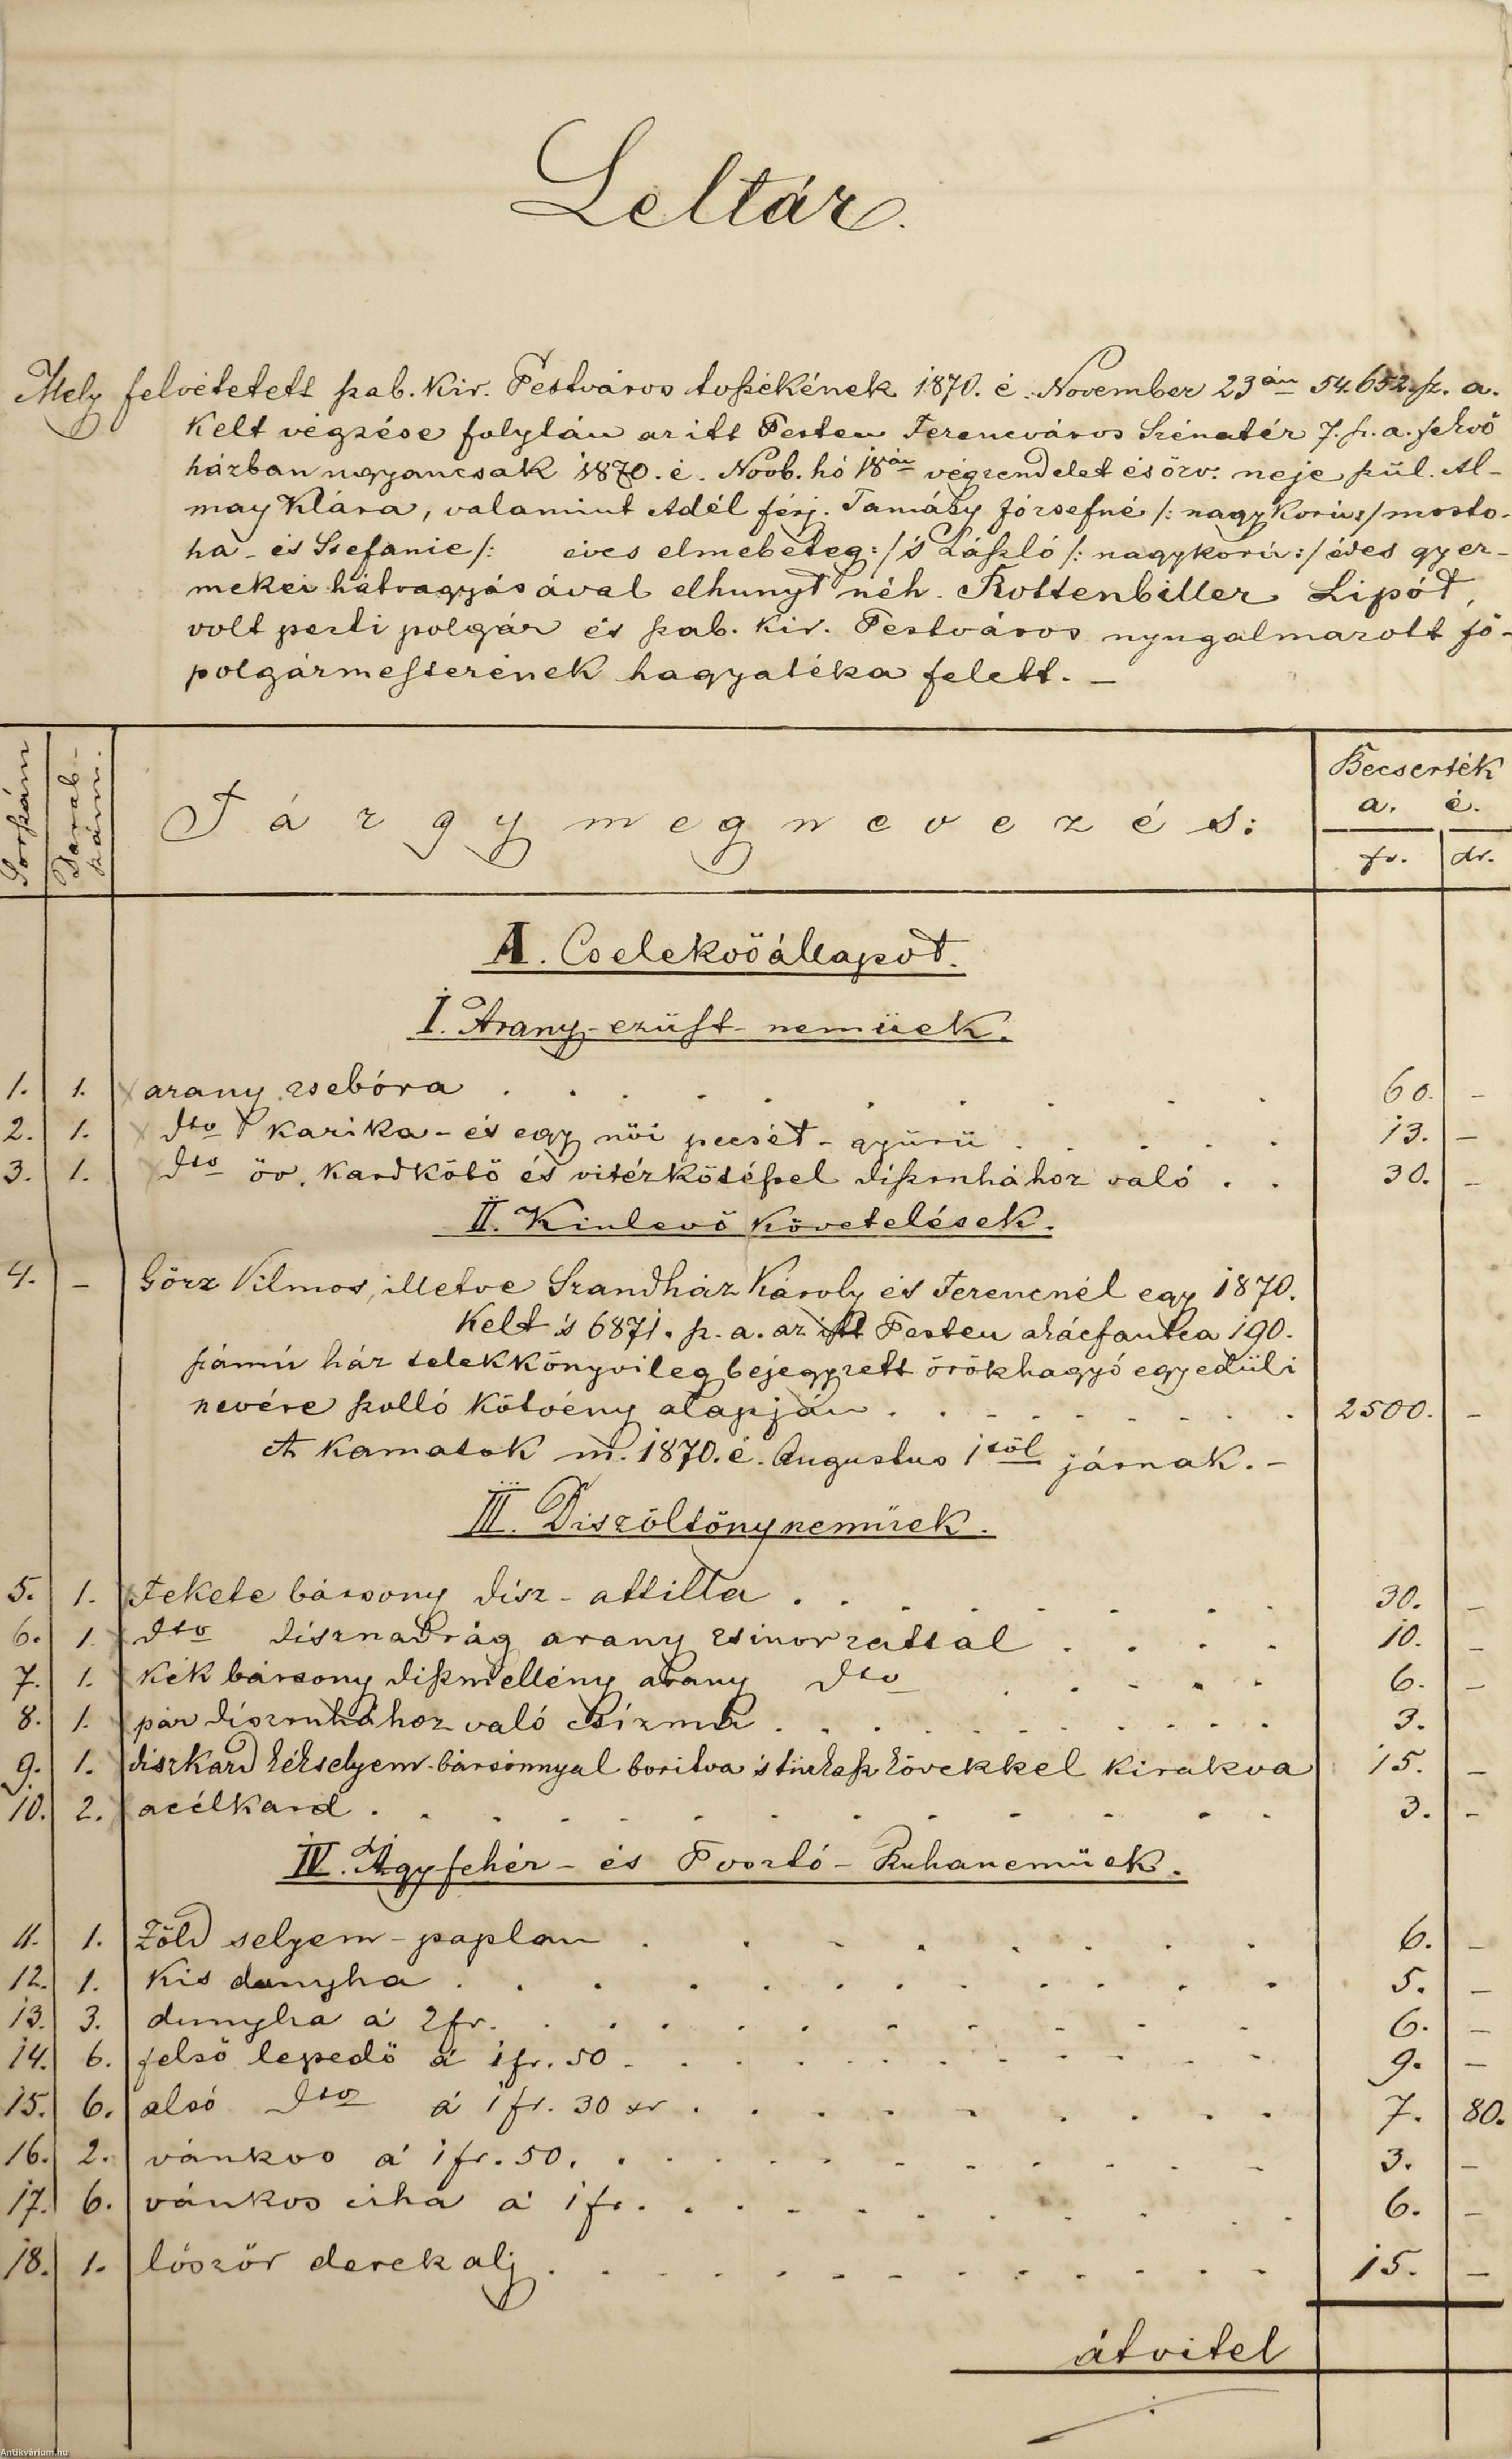 Leltár.
Mely felvétetett szab. kir. Pestváros tvszékének 1870. é. November 23án 54.652. sz. a.
kelt végzése folytán az itt Pesten Ferencváros Szénatér 7. sz. a. fekvő
házban ugyancsak 1870. é. Novb. hó 18án végrendelet és özv. neje szül. Al-
may Klára, valamint Adél férj. Tamásy Józsefné /: nagykorú :/ mosto-
ha- és Stefanie /: éves elmebeteg :/ 's László /: nagykorú :/ édes gyer-
mekei hátragyásával elhunyt néh. Rottenbiller Lipót,
volt pesti polgár és szab. kir. Pestváros nyugalmazott fő-
polgármesterének hagyatéka felett. -
Sorszám
Darab-
szám.
Tárgymegnevezés:
Becserték
a. é.
fr. kr.
A. Cselekvőállapot.
I. Arany-ezüst-neműek.
1. 1. arany zsebóra . . . 60. -
2. 1. dto karika- és egy női pecsét-gyűrű . . . 13. -
3. 1. dto öv, kardkötő és vitézkötéssel díszruhához való . . 30. -
II. Kinlevő követelések.
4. - Görz Vilmos, illetve Szandház Károly és Ferencnél egy 1870.
kelt 's 6871. sz. a. az itt Pesten a rácfautca 190.
számú ház telekkönyvileg bejegyzett örökhagyó egyedüli
nevére szolló kötvény alapján . . . 2500. -
A kamatok m. 1870. é. Augustus 1től járnak. -
III. Diszöltönyneműek.
5. 1. Fekete bársony dísz-attilla . . . 30. -
6. 1. dto dísznadrág arany zsinorzattal . . . 10. -
7. 1. kék bársony díszmellény arany dto . . . 6. -
8. 1. pár díszruhához való csizma . . . 3.
9. 1. diszkard kékselyem-bársonnyal boritva 's türkesz kövekkel kirakva 15. -
10. 2. acélkard . . . 3. -
IV. Ágyfehér- és Posztó-Ruhaneműek.
11. 1. Zöld selyem-paplan . . . 6. -
12. 1. kis dunyha . . . 5. -
13. 3. dunyha á 2 fr. . . . 6. -
14. 6. felső lepedő á 1 fr. 50 . . . 9. -
15. 6. alsó dto á 1 fr. 30 xr . . . 7. 80.
16. 2. vánkos á 1 fr. 50. . . . 3. -
17. 6. vánkos ciha á 1 fr. . . . 6. -
18. 1. lószőr derekalj . . . 15. -
átvitel
Antikvárium.hu